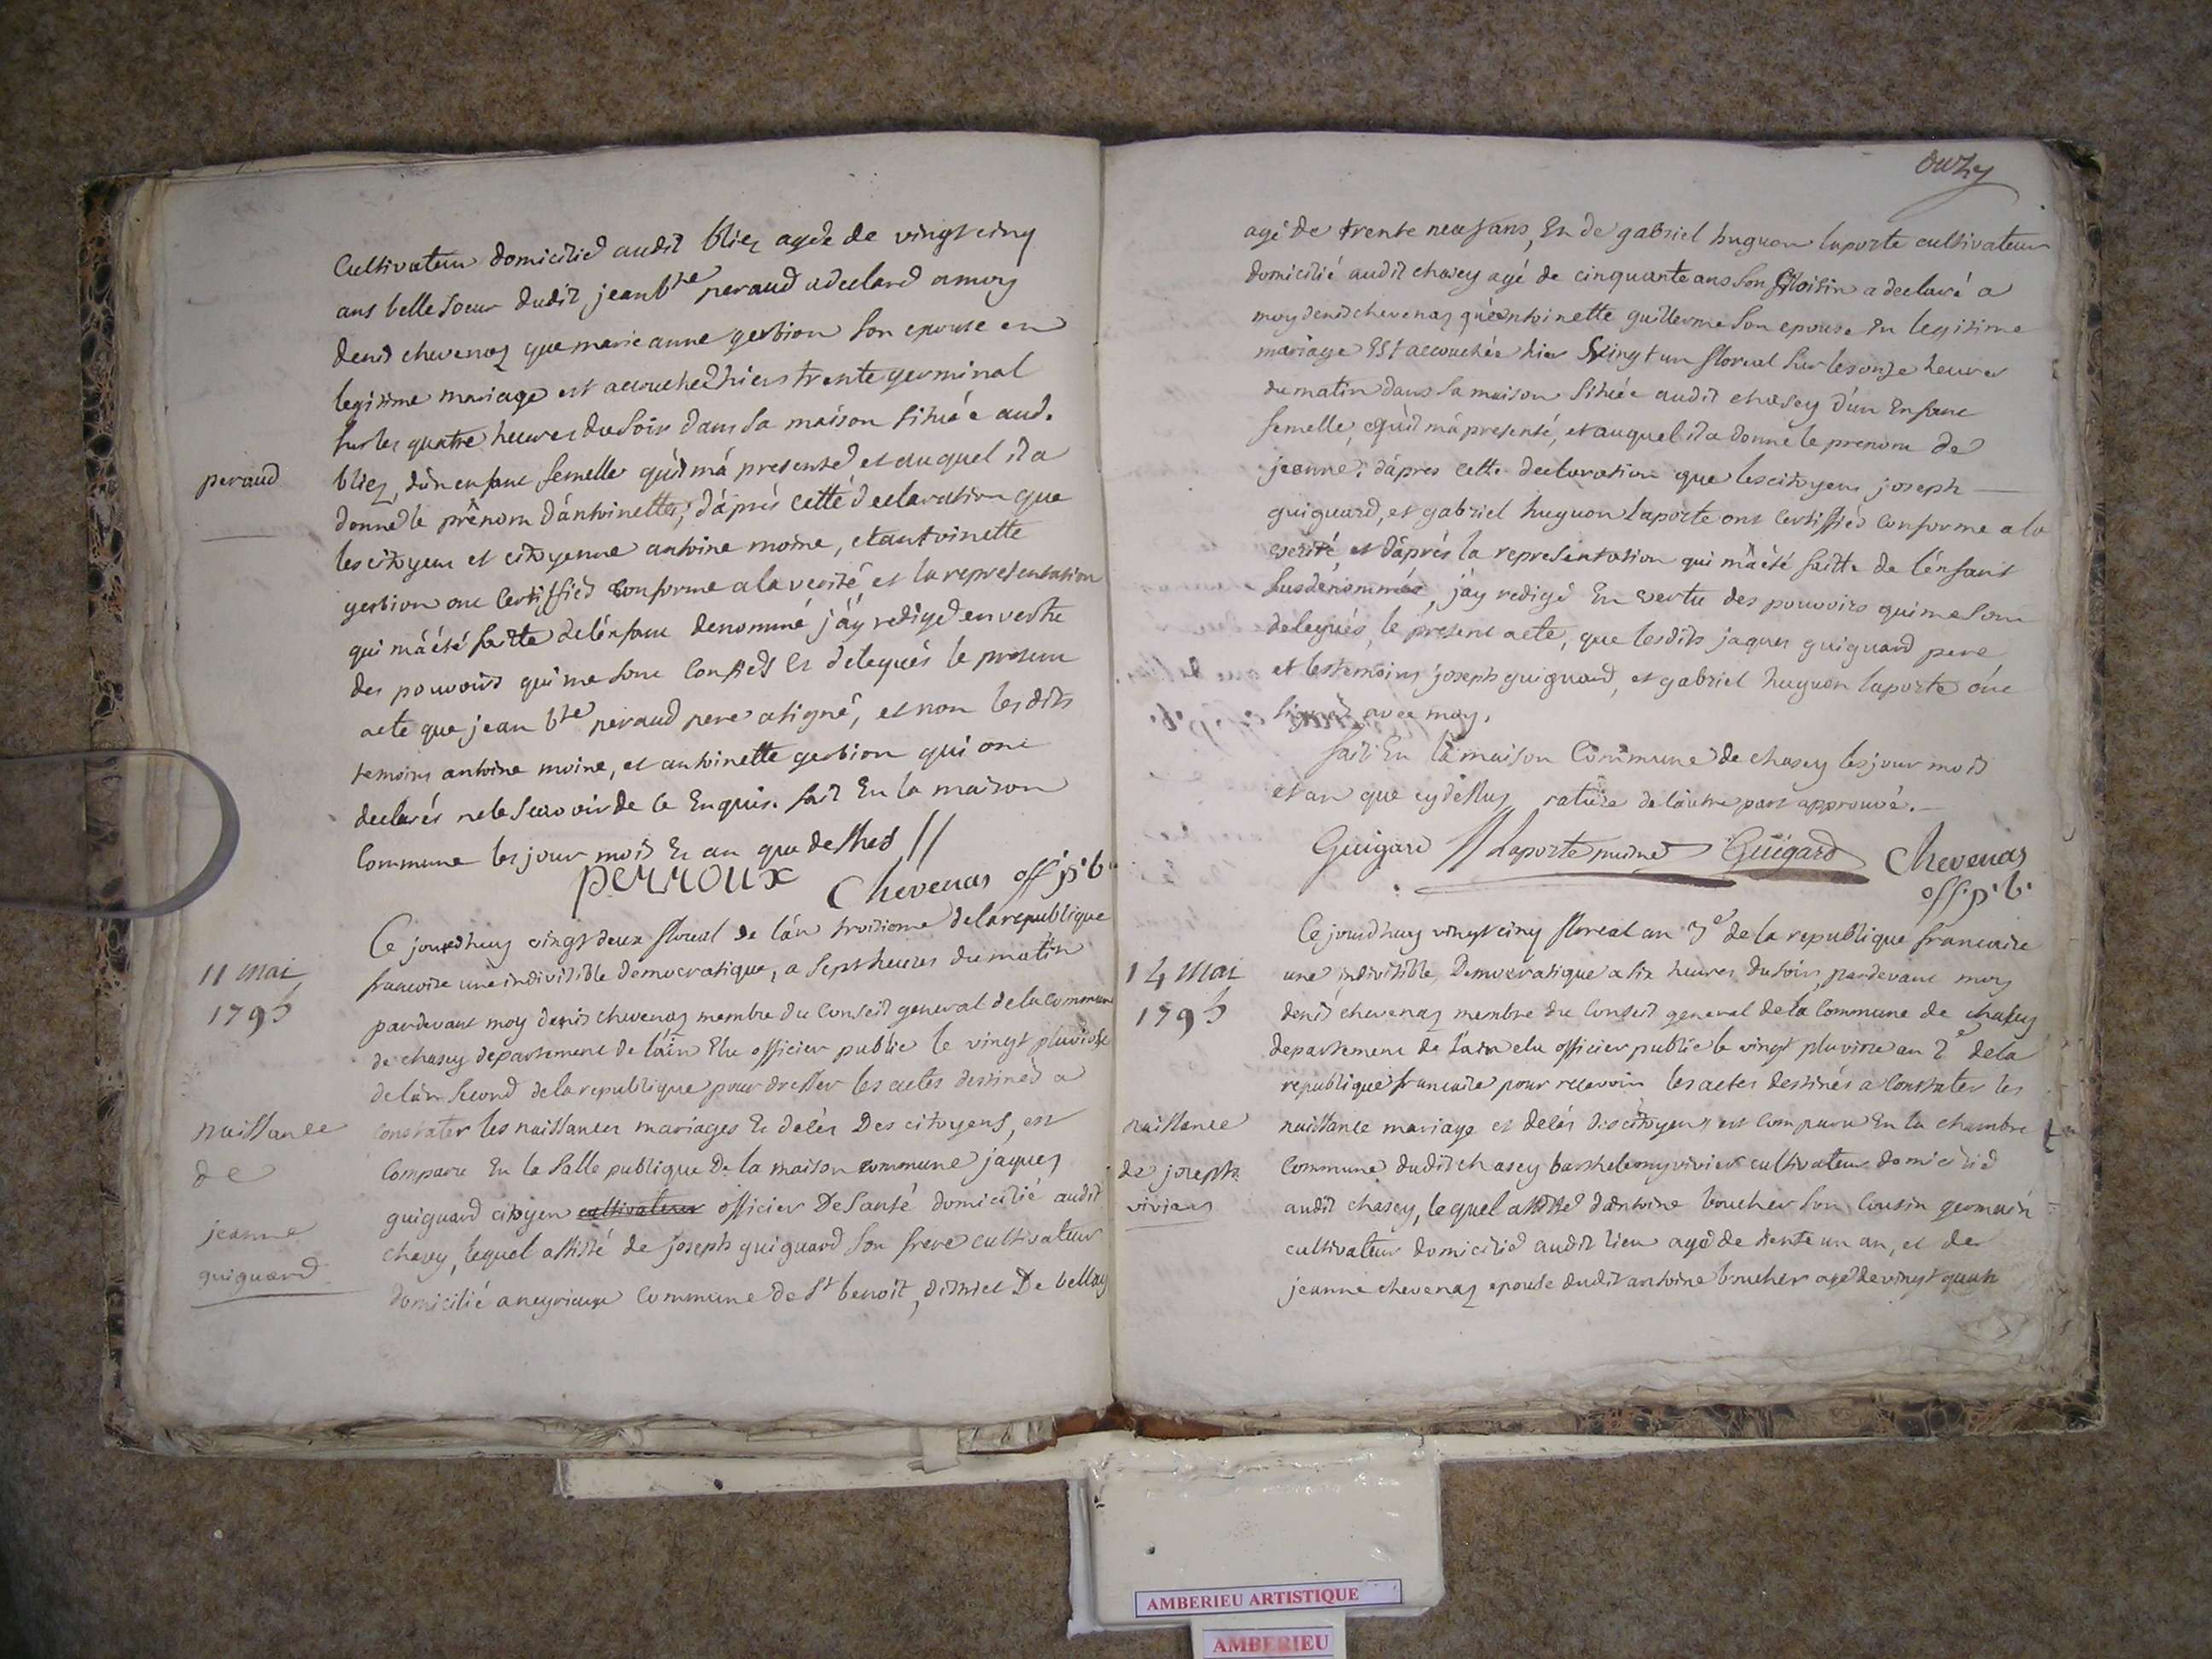 Cultivateur domicilié audit bliez agée de vingt cinq
ans belle soeur dudit jean bte peraud a declaré a moy
denis chevenaz que marie anne gerbion son epouse en
legitime mariage est accouchée hiers trente germinal
sur les quatre heures du soir dans sa maison située aud.
peraud
bliez, d'un enfant femelle qu'il m'a presenté et auquel il a
donné le prénom d'antoinette, d'aprés cette declaration que
les citoyens et citoyenne antoine moine, et antoinette
gerbion ont certiffiés conforme a la verité, et la representation
qui m'a été faitte de l'enfant denommé j'ay redigé en vertu
des pouvoirs qui me sont confiés et delegués le present
acte que jean bte peraud pere a signé, et non lesdits
temoins antoine moine, et antoinette gerbion qui ont
declarés ne le scavoir de ce Enquis. fait En la maison
Commune les jour mois Et an que dessus //
perroux Chevenas off. p. b.
Ce jourdhuy vingt deux floreal de l'an troisieme de la republique
francoise une indivisible democratique, a sept heures du matin
11 mai
1795
pardevant moy denis chevenaz membre du Conseil general de la commune
de chasey departement de l'ain Elu officier public le vingt pluviose
de l'an second de la republique pour dresser les actes destinés a
naissance
de
jeanne
guiguard
constater les naissances mariages Et décès Des citoyens, est
Comparu En la Salle publique De la maison commune jaques
guiguard citoyen cultivateur officier De Santé domicilié audit
chasey, lequel assisté de joseph guiguard son frere cultivateur
domicilié a neyrieux Commune de St benoit, district De bellay
agé de trente neuf ans, Et de gabriel huguon laporte cultivateur
domicilié audit chasey agé de cinquante ans son voisin a declaré a
moy denis chevenaz qu'antoinette guillerme son epouse En legitime
mariage Est accouchée hier vingt un floreal sur les onze heures
du matin dans sa maison située audit chasey d'un Enfant
femelle, qu'il m'a presenté, et auquel il a donné le prenom de
jeanne: d'apres cette declaration que les citoyens joseph
guiguard, et gabriel huguon laporte ont certiffiés conforme a la
verité, et d'après la representation qui m'a été faitte de l'enfant
susdenommée, j'ay redigé En vertu des pouvoirs qui me sont
delegués, le present acte, que lesdits jaques guiguard pere
et les temoins joseph guiguard, et gabriel huguon laporte ont
signés avec moy.
fait En la maison Commune de chasey les jour mois
et an que cy dessus rature de l'autre part approuvé.
Guigard // Laporte Guigard Chevenas
off. p. b.
Ce jourdhuy vingt cinq floreal an 3e de la republique francaise
14 mai
1795
une indivisible, Democratique a six heures du soir, pardevant moy
denis chevenaz membre du Conseil general de la Commune de chasey
departement de l'ain elu officier public le vingt pluviose an 2e de la
republique francaise pour recevoir les actes destinés a Constater les
naissance
de joseph
vivier
naissance mariage et décès des citoyens est comparu En la chambre
Commune dudit chasey barthelemy vivier cultivateur domicilié
audit chasey, lequel assisté d'antoine boucher son Cousin germain
cultivateur domicilié audit lieu agé de trente un an, et de
jeanne chevenaz epouse dudit antoine boucher agé de vingt quatre
AMBERIEU ARTISTIQUE
AMBERIEU